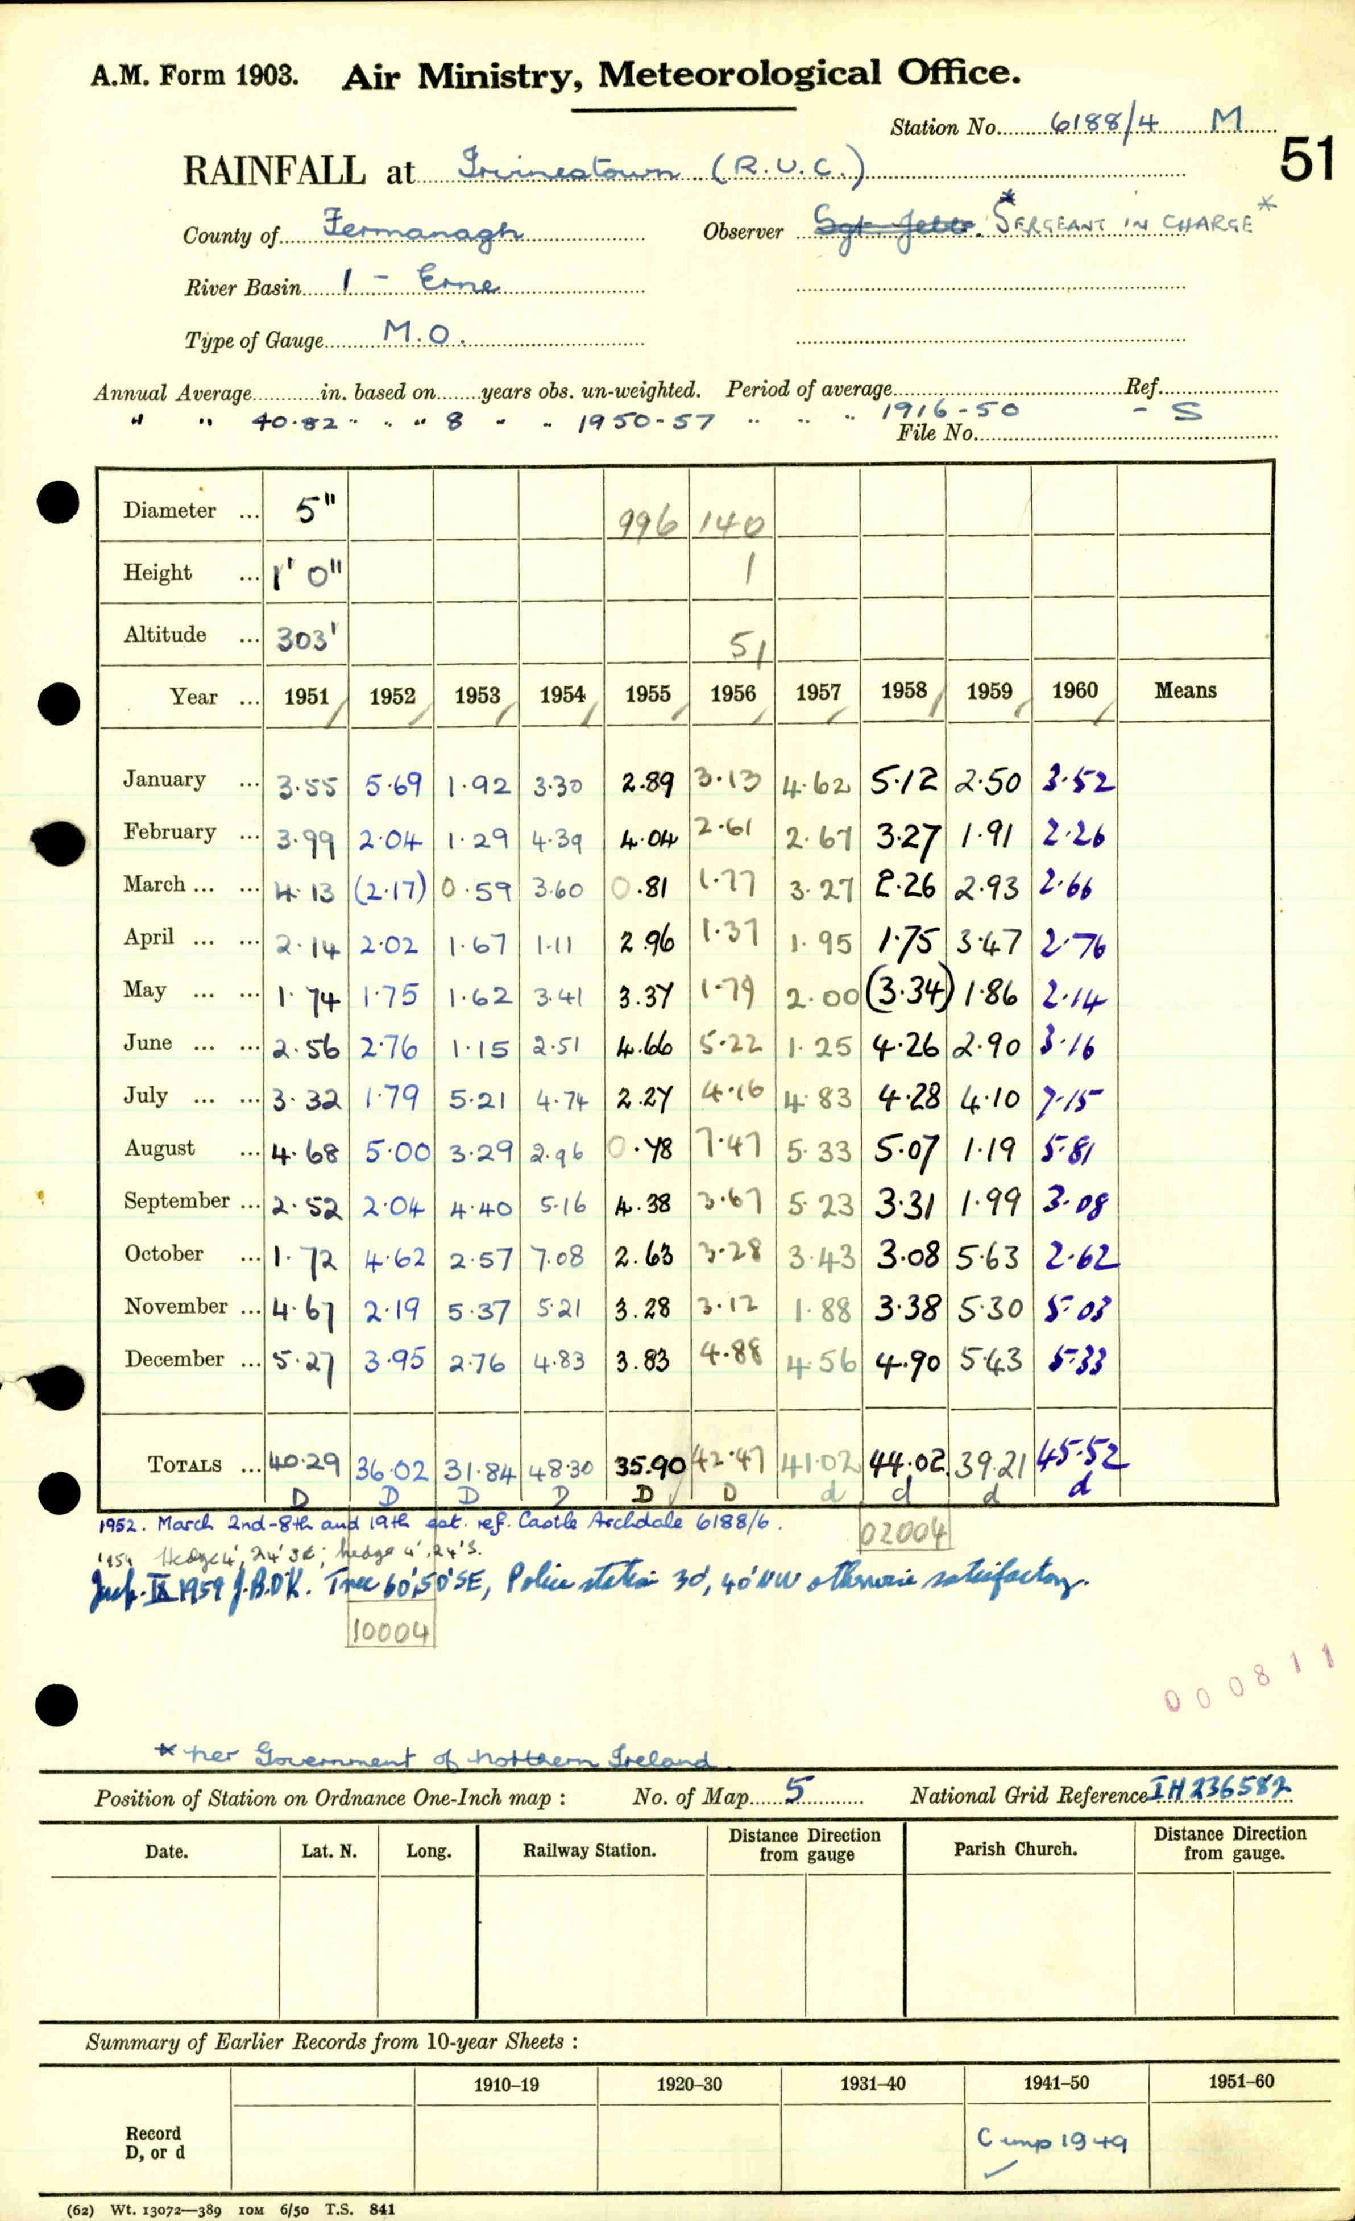 A.M. Form 1903. Air Ministry, Meteorological Office.
Station No. 6188/4 M
51
RAINFALL at Irvinestown (R.U.C.)
County of Fermanagh Observer Sgt. Jebb. *SERGEANT IN CHARGE*
River Basin 1 - Erne
Type of Gauge M.O.
Annual Average in. based on years obs. un-weighted. Period of average Ref.
" " 40.82 " " " 8 " " 1950-57 " " " 1916-50 - S
File No.
Diameter ... 5" 996 140
Height ... 1' 0" 1
Altitude ... 303' 51
Year ... 1951 1952 1953 1954 1955 1956 1957 1958 1959 1960 Means
January ... 3.55 5.69 1.92 3.30 2.89 3.13 4.62 5.12 2.50 3.52
February ... 3.99 2.04 1.29 4.39 4.04 2.61 2.67 3.27 1.91 2.26
March ... ... 4.13 (2.17) 0.59 3.60 0.81 1.77 3.27 2.26 2.93 2.66
April ... ... 2.14 2.02 1.67 1.11 2.96 1.37 1.95 1.75 3.47 2.76
May ... ... 1.74 1.75 1.62 3.41 3.37 1.79 2.00 (3.34) 1.86 2.14
June ... ... 2.56 2.76 1.15 2.51 4.66 5.22 1.25 4.26 2.90 3.16
July ... ... 3.32 1.79 5.21 4.74 2.27 4.16 4.83 4.28 4.10 7.15
August ... 4.68 5.00 3.29 2.96 0.78 7.47 5.33 5.07 1.19 5.81
September ... 2.52 2.04 4.40 5.16 4.38 3.67 5.23 3.31 1.99 3.08
October ... 1.72 4.62 2.57 7.08 2.63 3.28 3.43 3.08 5.63 2.62
November ... 4.67 2.19 5.37 5.21 3.28 3.12 1.88 3.38 5.30 5.03
December ... 5.27 3.95 2.76 4.83 3.83 4.88 4.56 4.90 5.43 5.33
TOTALS ... 40.29 36.02 31.84 48.30 35.90 42.47 41.02 44.02 39.21 45.52
D D D D D D d d d d
1952. March 2nd-8th and 19th est. ref. Castle Archdale 6188/6.
02004
1954 Hedge 4', 24' SE; hedge 4', 24' S.
Insp. IX 1959 J.B.D.K. Tree 60', 50' SE, Police station 30', 40' NW otherwise satisfactory.
10004
000811
* per Government of Northern Ireland.
Position of Station on Ordnance One-Inch map : No. of Map 5 National Grid Reference IH 236582
Date. Lat. N. Long. Railway Station. Distance Direction from gauge Parish Church. Distance Direction from gauge.
Summary of Earlier Records from 10-year Sheets :
1910–19 1920–30 1931–40 1941–50 1951–60
Record D, or d Comp 1949
(62) Wt. 13072—389 10M 6/50 T.S. 841